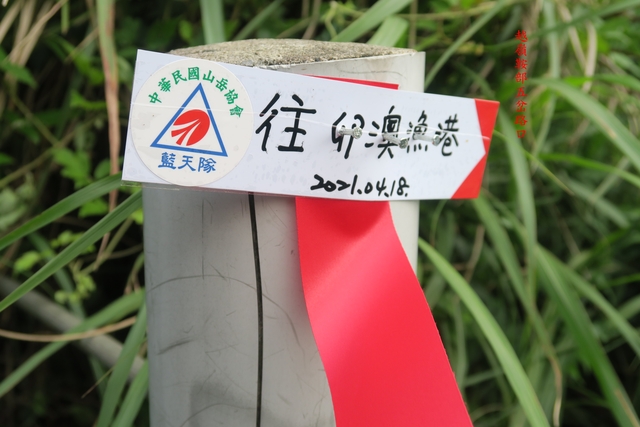 中華民國山岳協會
藍天隊
往 卯澳漁港
2021.04.18.